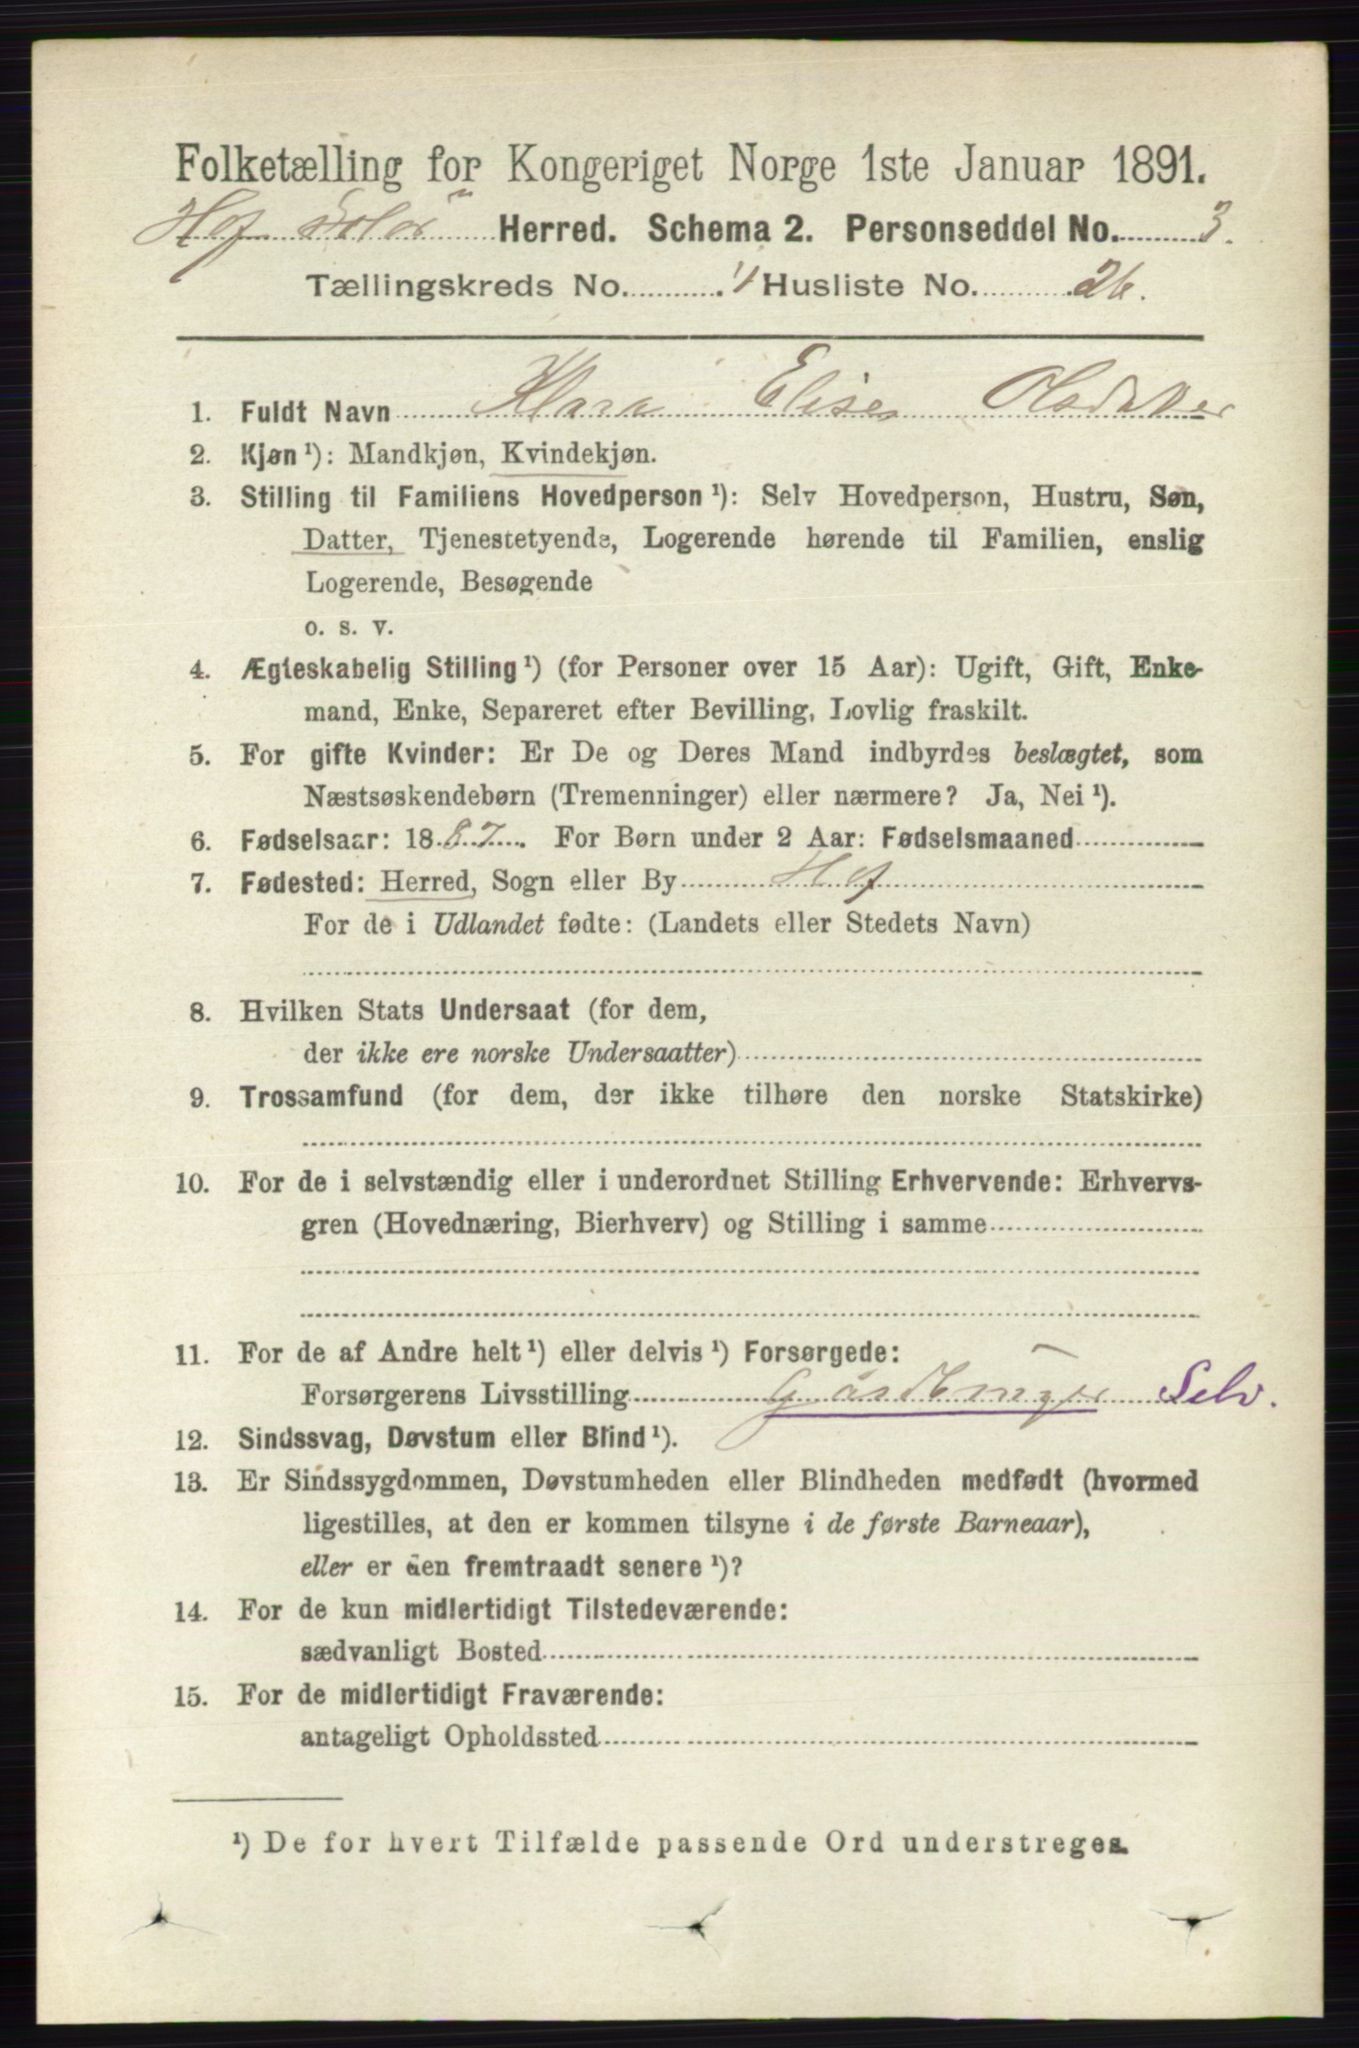 Folketælling for Kongeriget Norge 1ste Januar 1891.
Hof Solør Herred. Schema 2. Personseddel No. 3.
Tællingskreds No. 4 Husliste No. 26.
1. Fuldt Navn Klara Elise Olsdatter
2. Kjøn ¹): Mandkjøn, Kvindekjøn.
3. Stilling til Familiens Hovedperson ¹): Selv Hovedperson, Hustru, Søn,
Datter, Tjenestetyende, Logerende hørende til Familien, enslig
Logerende, Besøgende
o. s. v.
4. Ægteskabelig Stilling ¹) (for Personer over 15 Aar): Ugift, Gift, Enke-
mand, Enke, Separeret efter Bevilling, Lovlig fraskilt.
5. For gifte Kvinder: Er De og Deres Mand indbyrdes beslægtet, som
Næstsøskendebørn (Tremenninger) eller nærmere? Ja, Nei ¹).
6. Fødselsaar: 1887. For Børn under 2 Aar: Fødselsmaaned
7. Fødested: Herred, Sogn eller By Hof
For de i Udlandet fødte: (Landets eller Stedets Navn)
8. Hvilken Stats Undersaat (for dem,
der ikke ere norske Undersaatter)
9. Trossamfund (for dem, der ikke tilhøre den norske Statskirke)
10. For de i selvstændig eller i underordnet Stilling Erhvervende: Erhvervs-
gren (Hovednæring, Bierhverv) og Stilling i samme
11. For de af Andre helt ¹) eller delvis ¹) Forsørgede:
Forsørgerens Livsstilling Selv.
12. Sindssvag, Døvstum eller Blind ¹).
13. Er Sindssygdommen, Døvstumheden eller Blindheden medfødt (hvormed
ligestilles, at den er kommen tilsyne i de første Barneaar),
eller er den fremtraadt senere ¹)?
14. For de kun midlertidigt Tilstedeværende:
sædvanligt Bosted
15. For de midlertidigt Fraværende:
antageligt Opholdssted
¹) De for hvert Tilfælde passende Ord understreges.